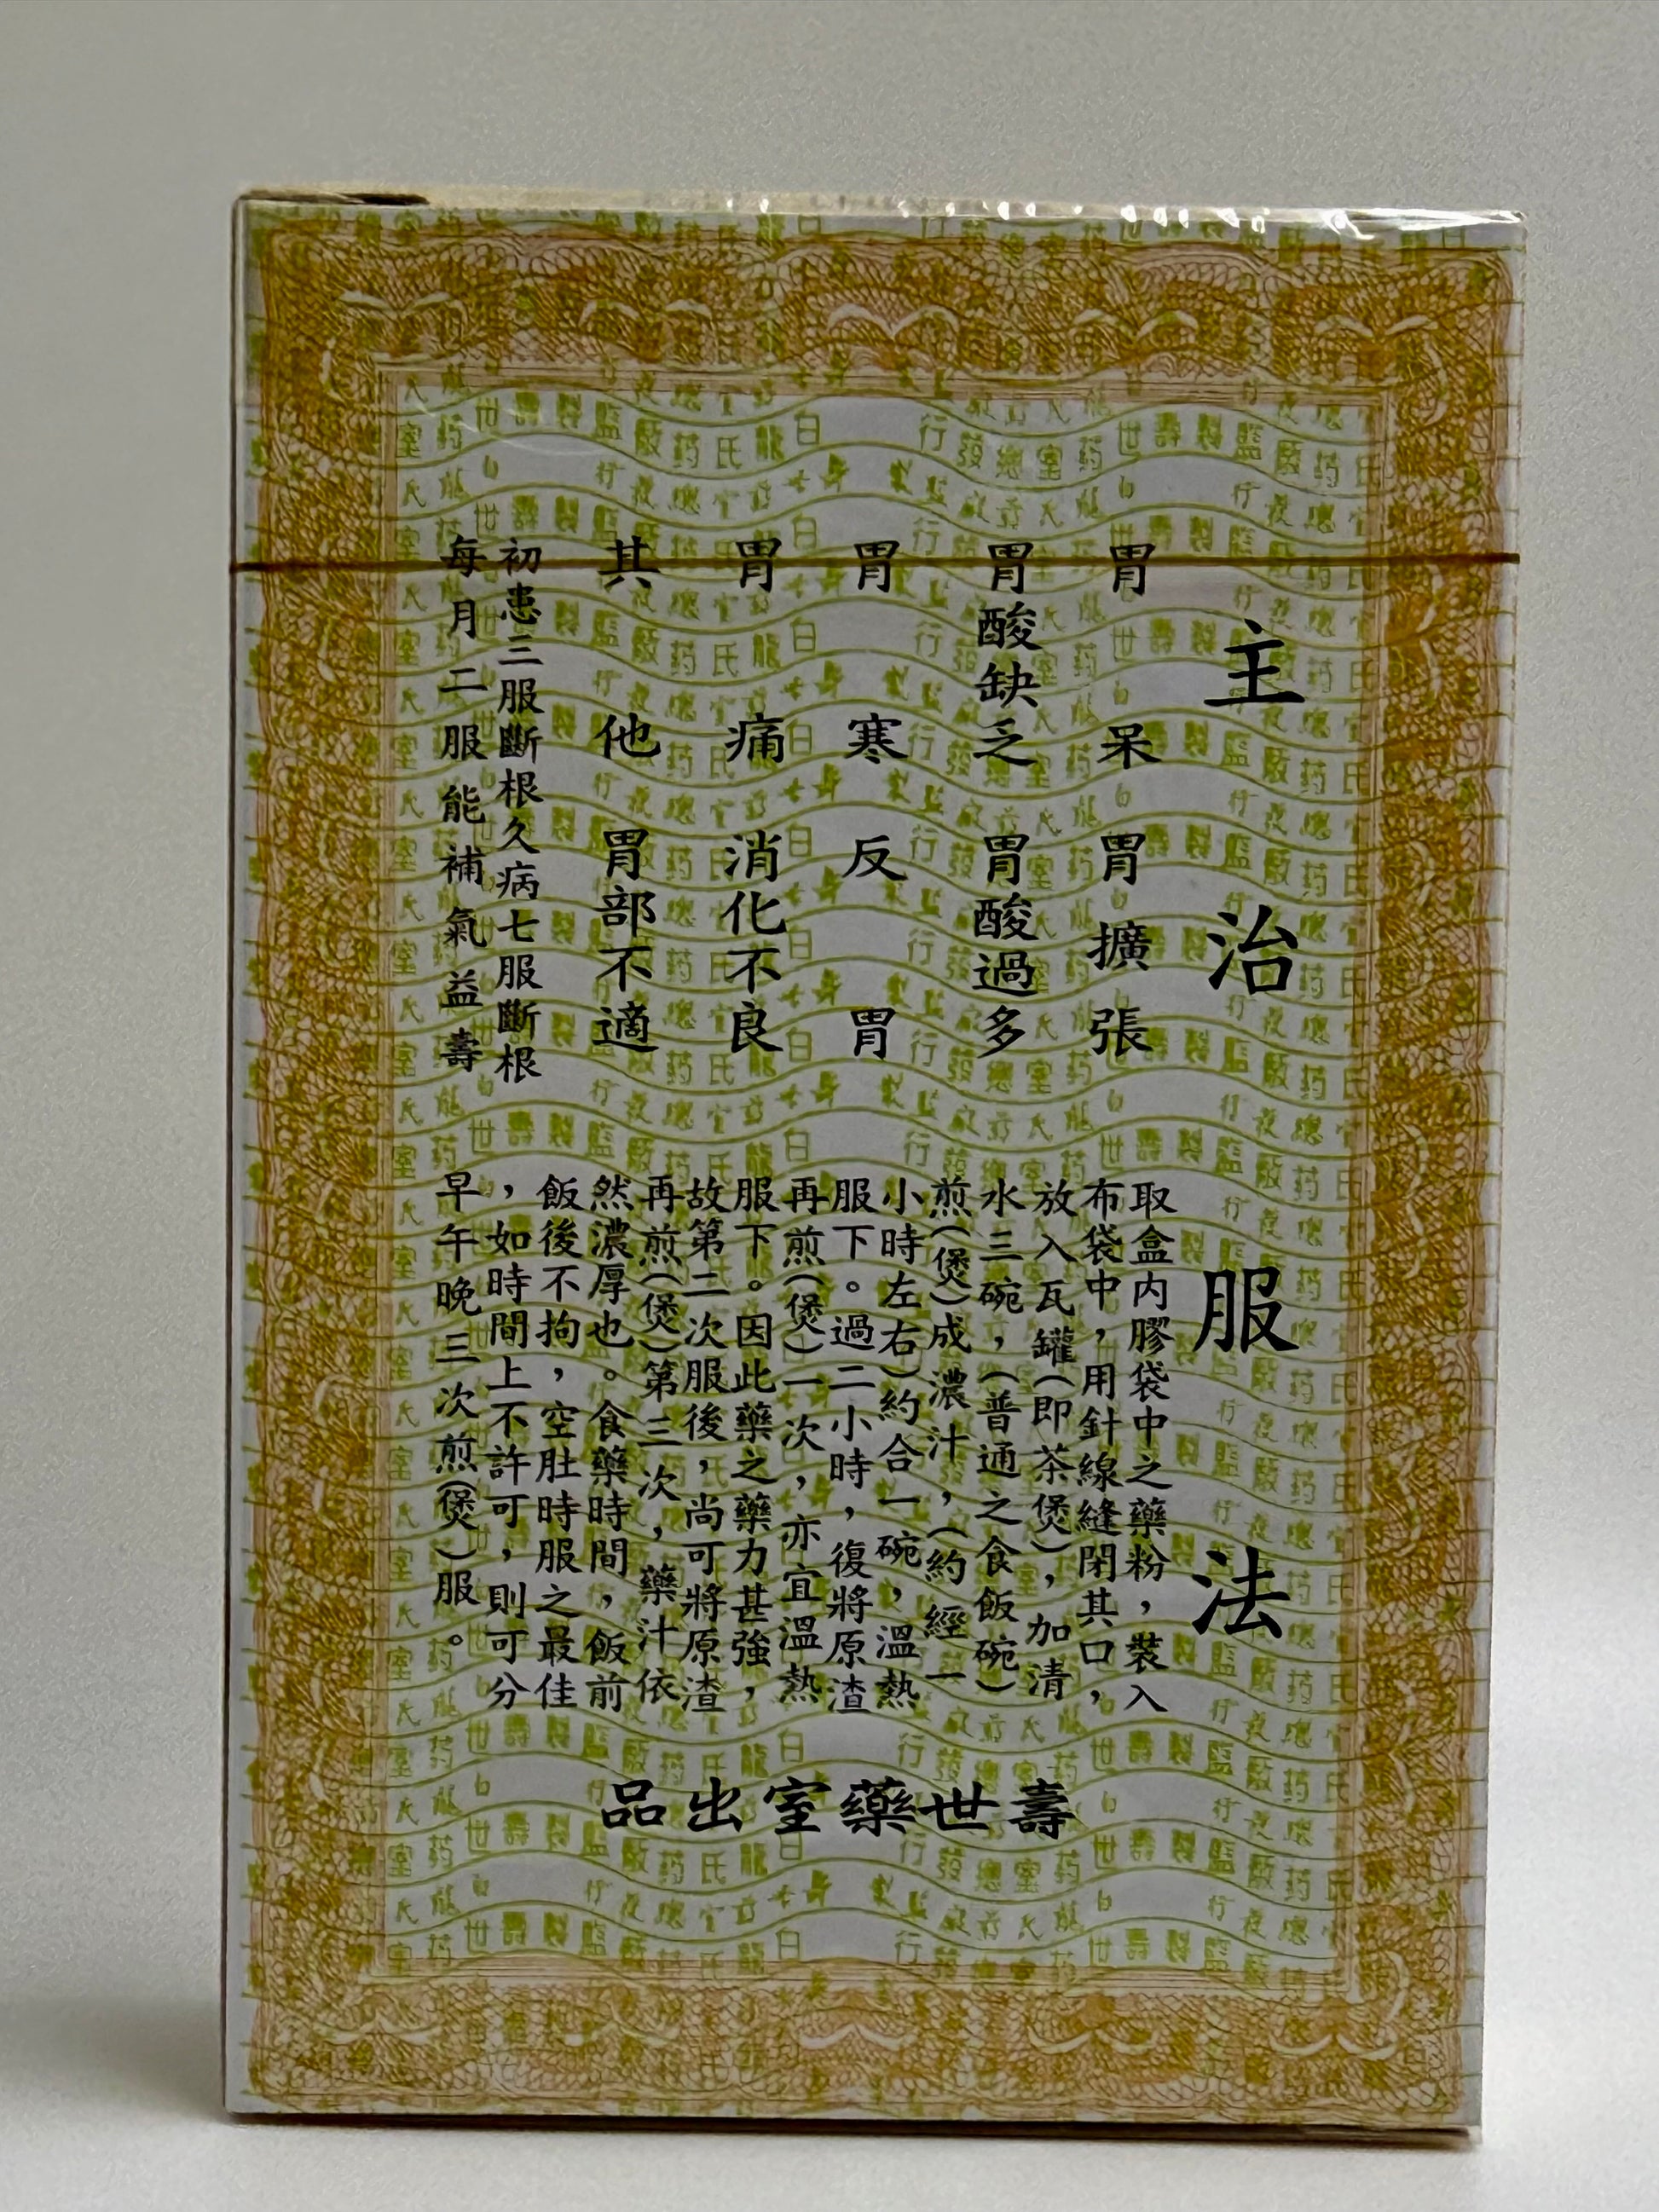 主治
胃呆 胃擴張
胃酸缺乏 胃酸過多
胃寒 反胃
胃痛 消化不良
其他 胃部不適
初患三服斷根久病七服斷根
每月二服能補氣益壽
服法
取盒内膠袋中之藥粉，裝入
布袋中，用針線縫閉其口，
放入瓦罐（即茶煲），加清
水三碗，（普通之食飯碗）
煎（煲）成濃汁，（約經一
小時左右）約合一碗，溫熱
服下。過二小時，復將原渣
再煎（煲）一次，亦宜溫熱
服下。因此藥之藥力甚強，
故第二次服後，尚可將原渣
再煎（煲）第三次，藥汁依
然濃厚也。食藥時間，飯前
飯後不拘，空肚時服之最佳
，如時間上不許可，則可分
早午晚三次煎（煲）服。
壽世藥室出品